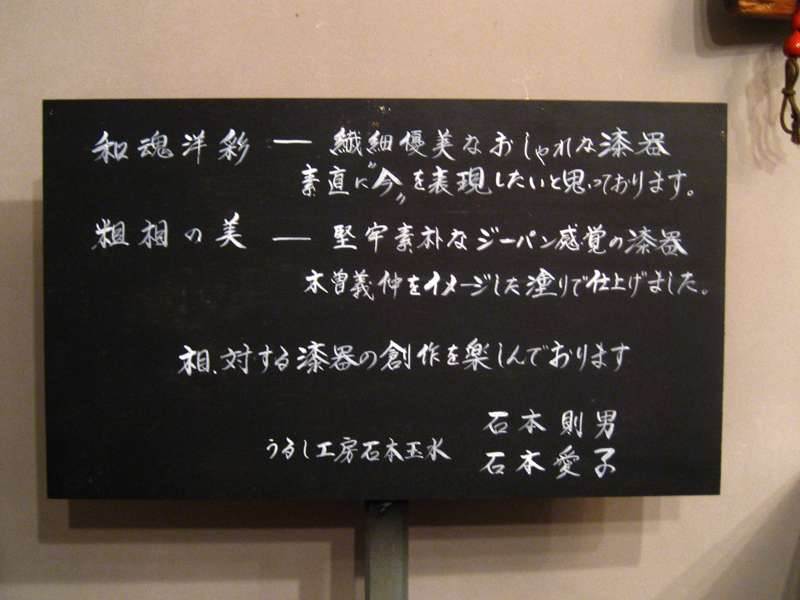 和魂洋彩 — 繊細優美なおしゃれな漆器
素直に〝今〟を表現したいと思っております。
粗相の美 — 堅牢素朴なジーパン感覚の漆器
木曽義仲をイメージした塗りで仕上げました。
相、対する漆器の創作を楽しんでおります
石本則男
うるし工房石本玉水
石本愛子